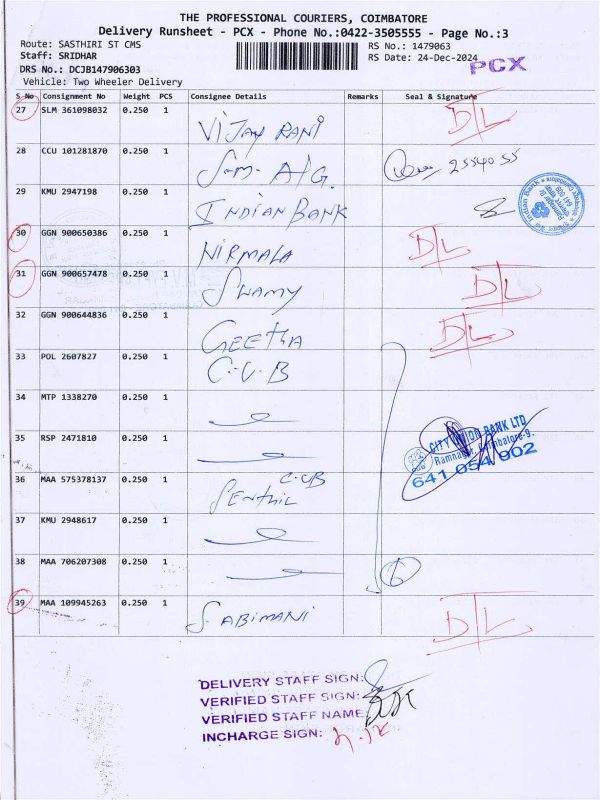 THE PROFESSIONAL COURIERS, COIMBATORE
Delivery Runsheet - PCX - Phone No.:0422-3505555 - Page No.:3
Route: SASTHIRI ST CMS
RS No.: 1479063
Staff: SRIDHAR
RS Date: 24-Dec-2024
PCX
DRS No.: DCJB147906303
Vehicle: Two Wheeler Delivery
S No Consignment No Weight PCS Consignee Details Remarks Seal & Signature
27 SLM 361098032 0.250 1 VIJAY RANI D/L
28 CCU 101281870 0.250 1 S.M. A/G. 2554055
29 KMU 2947198 0.250 1 INDIAN BANK
Indian Bank
30 GGN 900650386 0.250 1 NIRMALA D/L
31 GGN 900657478 0.250 1 SWAMY D/L
32 GGN 900644836 0.250 1 GEETHA D/L
33 POL 2607827 0.250 1 C.U.B
34 MTP 1338270 0.250 1
35 RSP 2471810 0.250 1
CITY UNION BANK LTD
Ramnagar, Coimbatore-9.
641 054 002
36 MAA 575378137 0.250 1 C.UB SENTHIL
37 KMU 2948617 0.250 1
38 MAA 706207308 0.250 1 6
39 MAA 109945263 0.250 1 S. ABIMANI D/L
DELIVERY STAFF SIGN:
VERIFIED STAFF SIGN:
VERIFIED STAFF NAME:
INCHARGE SIGN: